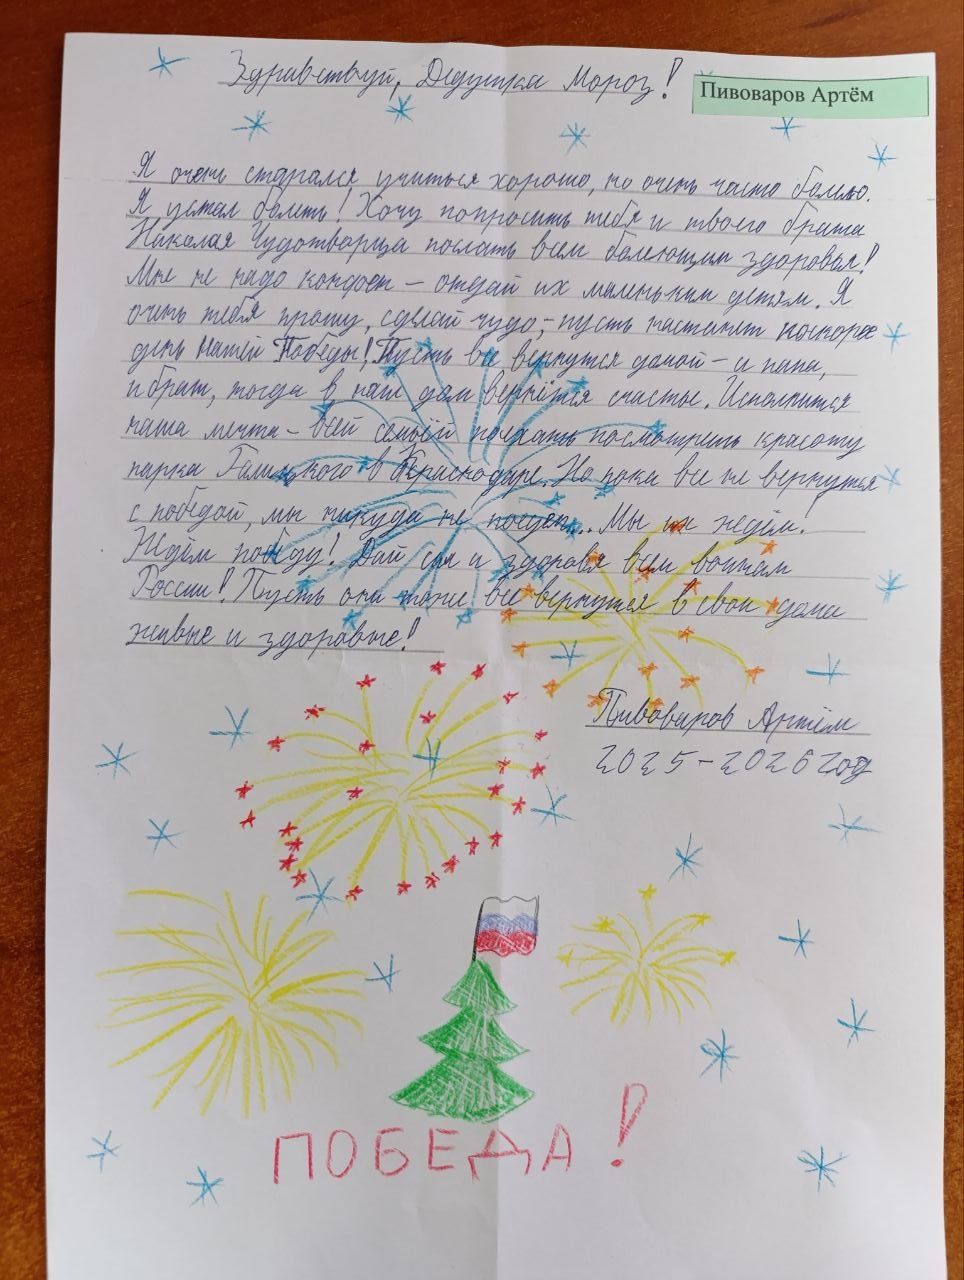 Здравствуй, Дедушка Мороз!
Пивоваров Артём
Я очень старался учиться хорошо, но очень часто болею.
Я устал болеть! Хочу попросить тебя и твоего брата
Николая Чудотворца послать всем болеющим здоровья!
Мне не надо конфет – отдай их маленьким детям. Я
очень тебя прошу, сделай чудо, – пусть настанет поскорее
день нашей Победы! Пусть все вернутся домой – и папа,
и брат, тогда в наш дом вернётся счастье. Исполнится
наша мечта – всей семьёй поехать посмотреть красоту
парка Галицкого в Краснодаре. Но пока все не вернутся
с победой, мы никуда не поедем... Мы их ждём!
Ждём победу! Дай сил и здоровя всем воинам
России! Пусть они тоже все вернутся в свои дома
живые и здоровые!
Пивоваров Артём
2025-2026 год
ПОБЕДА!